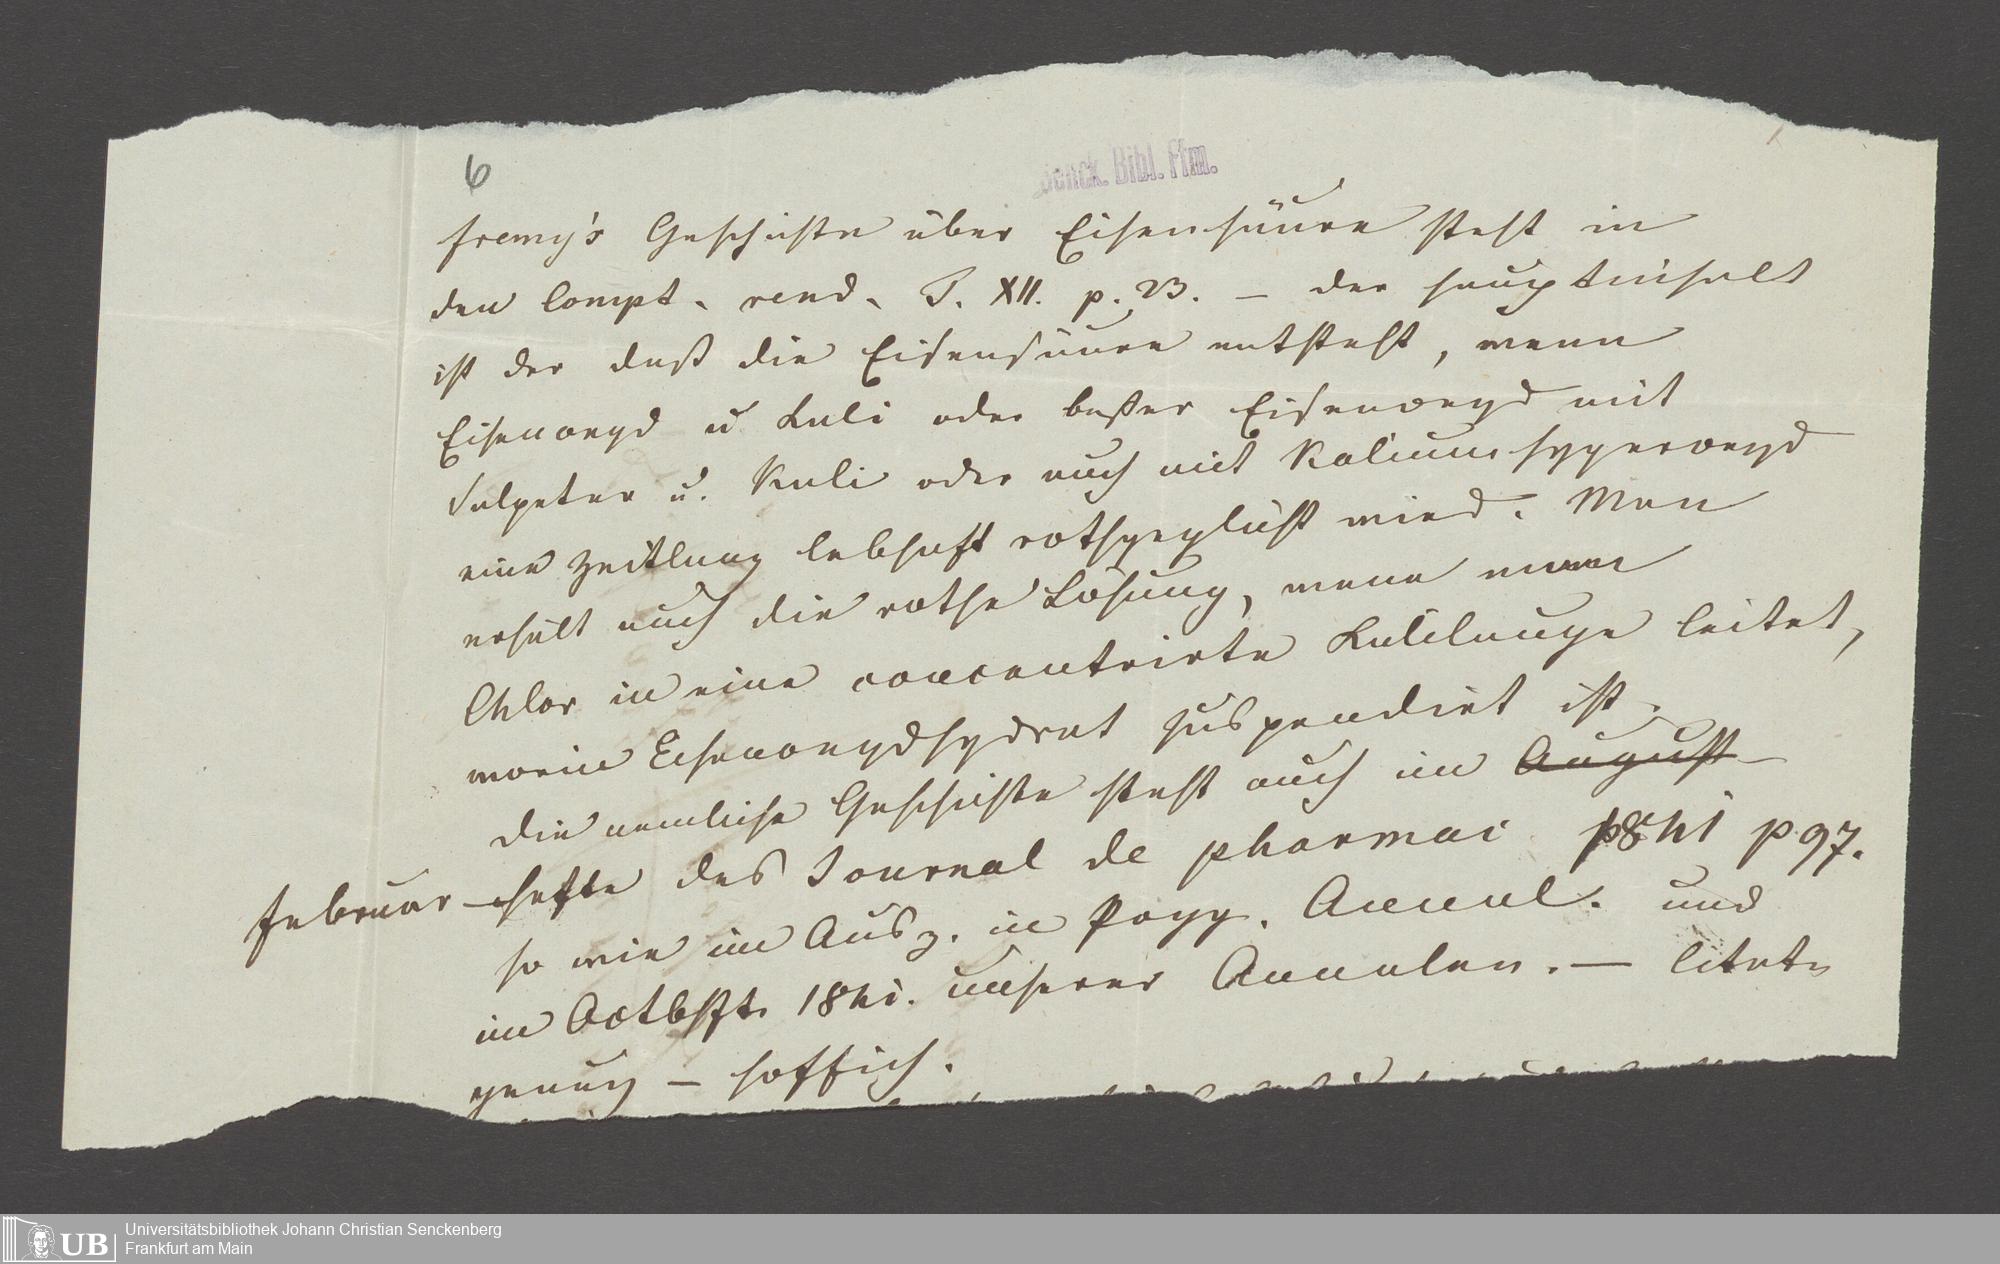 6
Senck. Bibl. Ffm.
Fremy's Geschichte über Eisensäure steht in
den Compt. rend. T. XII. p. 23. — der Hauptinhalt
ist der daß die Eisensäure entsteht, wenn
Eisenoxyd u Kali oder beßer Eisenoxyd mit
Salpeter u. Kali oder auch mit Kaliumhyperoxyd
eine Zeitlang lebhaft rothgeglüht wird. Man
erhält auch die rothe Lösung, wenn man
Chlor in eine concentrirte Kalilauge leitet,
worin Eisenoxydhydrat suspendirt ist.
die nemliche Geschichte steht auch im August
Februar-hefte des Journal de pharmac 1841 p 97.
so wie im Ausz. in Pogg. Annal. und
im Octbhft. 1841. unserer Annalen. — Citate
genug — hoff ich.
Universitätsbibliothek Johann Christian Senckenberg
UB Frankfurt am Main